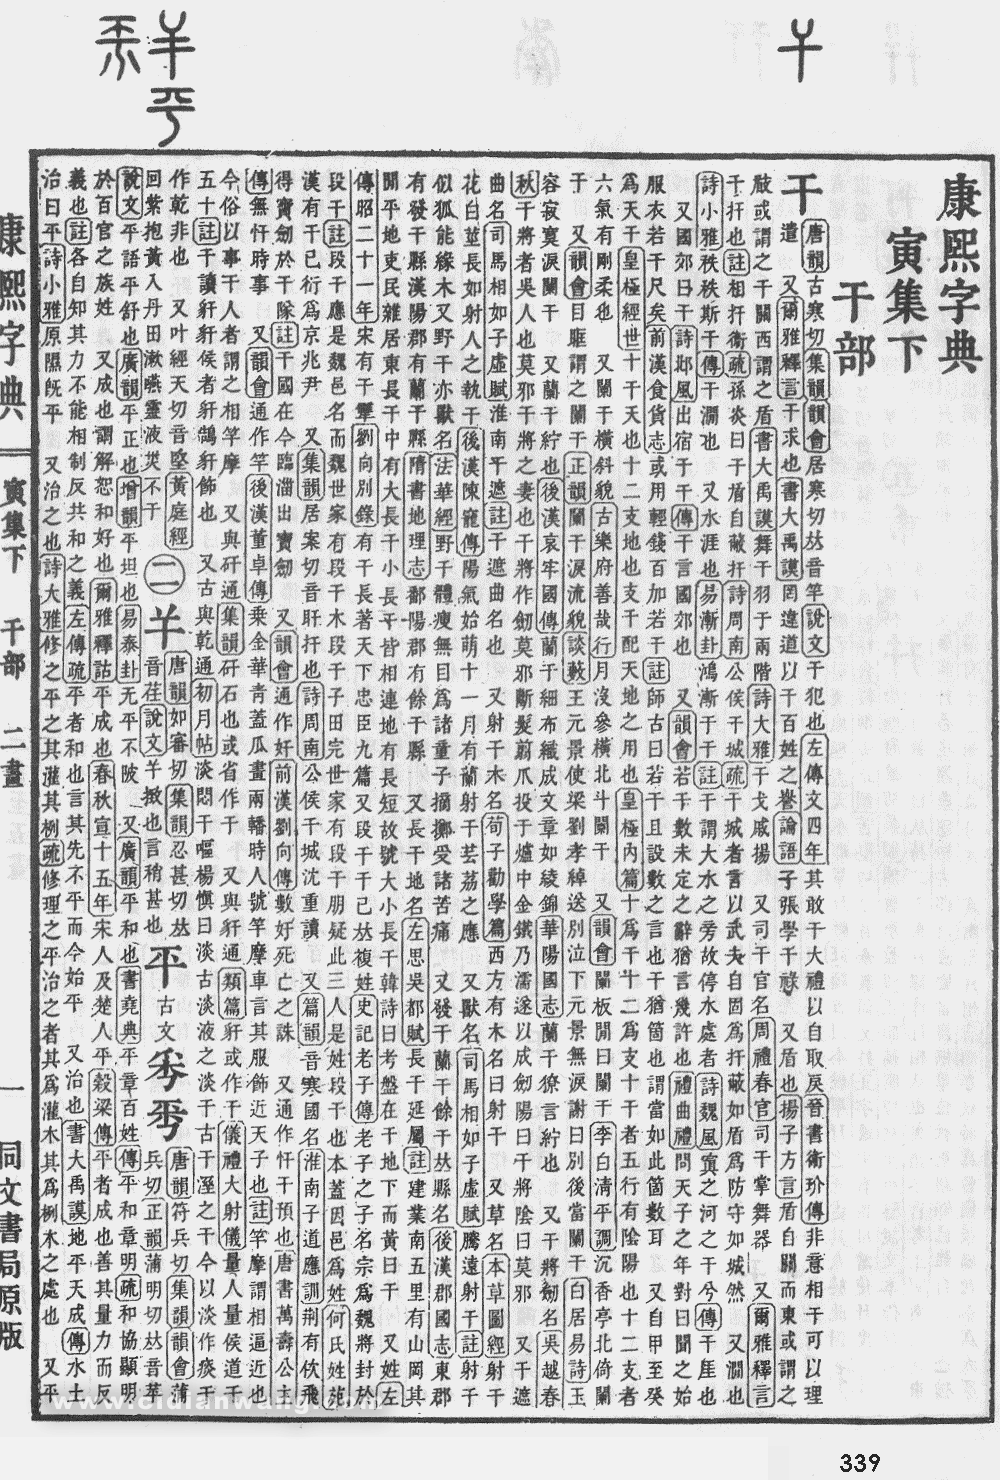 康熙字典
寅集下
干部
干
唐韻古寒切集韻韻會居寒切𠀤音竿說文干犯也左傳文四年其敢干大禮以自取戾晉書衛玠傳非意相干可以理
遣 又爾雅釋言干求也書大禹謨罔違道以干百姓之譽論語子張學干祿 又盾也揚子方言盾自關而東或謂之
瞂或謂之干關西謂之盾書大禹謨舞干羽于兩階詩大雅干戈戚揚 又司干官名周禮春官司干掌舞器 又爾雅釋言
干扞也註相扞衞疏孫炎曰干盾自蔽扞詩周南公侯干城疏干城者言以武夫自固爲扞蔽如盾爲防守如城然 又澗也
詩小雅秩秩斯干傳干澗也 又水涯也易漸卦鴻漸于干註干謂大水之旁故停水處者詩魏風寘之河之干兮傳干厓也
又國郊曰干詩邶風出宿于干傳干言國郊也 又韻會若干數未定之辭猶言幾許也禮曲禮問天子之年對曰聞之始
服衣若干尺矣前漢食貨志或用輕錢百加若干註師古曰若干且設數之言也干猶箇也謂當如此箇數耳 又自甲至癸
爲天干皇極經世十干天也十二支地也支干配天地之用也皇極內篇十爲干十二爲支十干者五行有隂陽也十二支者
六氣有剛柔也 又闌干橫斜貌古樂府善哉行月沒參橫北斗闌干 又韻會闌板閒曰闌干李白淸平調沉香亭北倚闌
干 又韻會目眶謂之闌干正韻闌干淚流貌談藪王元景使梁劉孝綽送別泣下元景無淚謝曰別後當闌干白居易詩玉
容寂寞淚闌干 又蘭干紵也後漢哀牢國傳蘭干細布織成文章如綾錦華陽國志蘭干獠言紵也 又干將劒名吳越春
秋干將者吳人也莫邪干將之妻也干將作劒莫邪斷髮翦爪投于爐中金鐵乃濡遂以成劒陽曰干將隂曰莫邪 又干遮
曲名司馬相如子虛賦淮南干遮註干遮曲名也 又射干木名荀子勸學篇西方有木名曰射干 又草名本草圖經射干
花白莖長如射人之執干後漢陳寵傳陽氣始萌十一月有蘭射干芸荔之應 又獸名司馬相如子虛賦騰遠射干註射干
似狐能緣木又野干亦獸名法華經野干體瘦無目爲諸童子摘擲受諸苦痛 又發干蘭干餘干𠀤縣名後漢郡國志東郡
有發干縣漢陽郡有蘭干縣隋書地理志鄱陽郡有餘干縣 又長干地名左思吳都賦長干延屬註建業南五里有山岡其
閒平地吏民雜居東長干中有大長干小長干皆相連地有長短故號大小長干韓詩曰考盤在干地下而黃曰干 又姓左
傳昭二十一年宋有干犨劉向別錄有干長著天下忠臣九篇 又段干干已𠀤複姓史記老子傳老子之子名宗爲魏將封於
段干註段干應是魏邑名而魏世家有段干木段干子田完世家有段干朋疑此三人是姓段干也本蓋因邑爲姓何氏姓苑
漢有干已衍爲京兆尹 又集韻居案切音旰扞也詩周南公侯干城沈重讀 又篇韻音寒國名淮南子道應訓荆有佽飛
得寶劒於干隊註干國在今臨淄出寶劒 又韻會通作奸前漢劉向傳數奸死亡之誅 又通作忓干預也唐書萬壽公主
傳無忓時事 又韻會通作竿後漢董卓傳乗金華靑蓋瓜畫兩轓時人號竿摩車言其服飾近天子也註竿摩謂相逼近也
今俗以事干人者謂之相竿摩 又與矸通集韻矸石也或省作干 又與豻通類篇豻或作干儀禮大射儀量人量侯道干
五十註干讀豻豻侯者豻鵠豻飾也 又古與乾通初月帖淡悶干嘔楊愼曰淡古淡液之淡干古干溼之干今以淡作痰干
作乾非也 又叶經天切音堅黃庭經
回紫抱黃入丹田漱嚥靈液災不干
二
𢆉
唐韻如審切集韻忍甚切𠀤
音荏說文𢆉撖也言稍甚也
平
古文
𠀘
𤔔
唐韻符兵切集韻韻會蒲
兵切正韻蒲明切𠀤音苹
說文平語平舒也廣韻平正也增韻平坦也易泰卦无平不陂 又廣韻平和也書堯典平章百姓傳平和章明疏和協顯明
於百官之族姓 又成也謂解恕和好也爾雅釋詁平成也春秋宣十五年宋人及楚人平穀梁傳平者成也善其量力而反
義也註各自知其力不能相制反共和之義左傳疏平者和也言其先不平而今始平 又治也書大禹謨地平天成傳水土
治曰平詩小雅原隰旣平 又治之也詩大雅修之平之其灌其栵疏修理之平治之者其爲灌木其爲栵木之處也 又平
康熙字典 寅集下 干部 二畫 一 同文書局原版
www.cidianwang.com
339